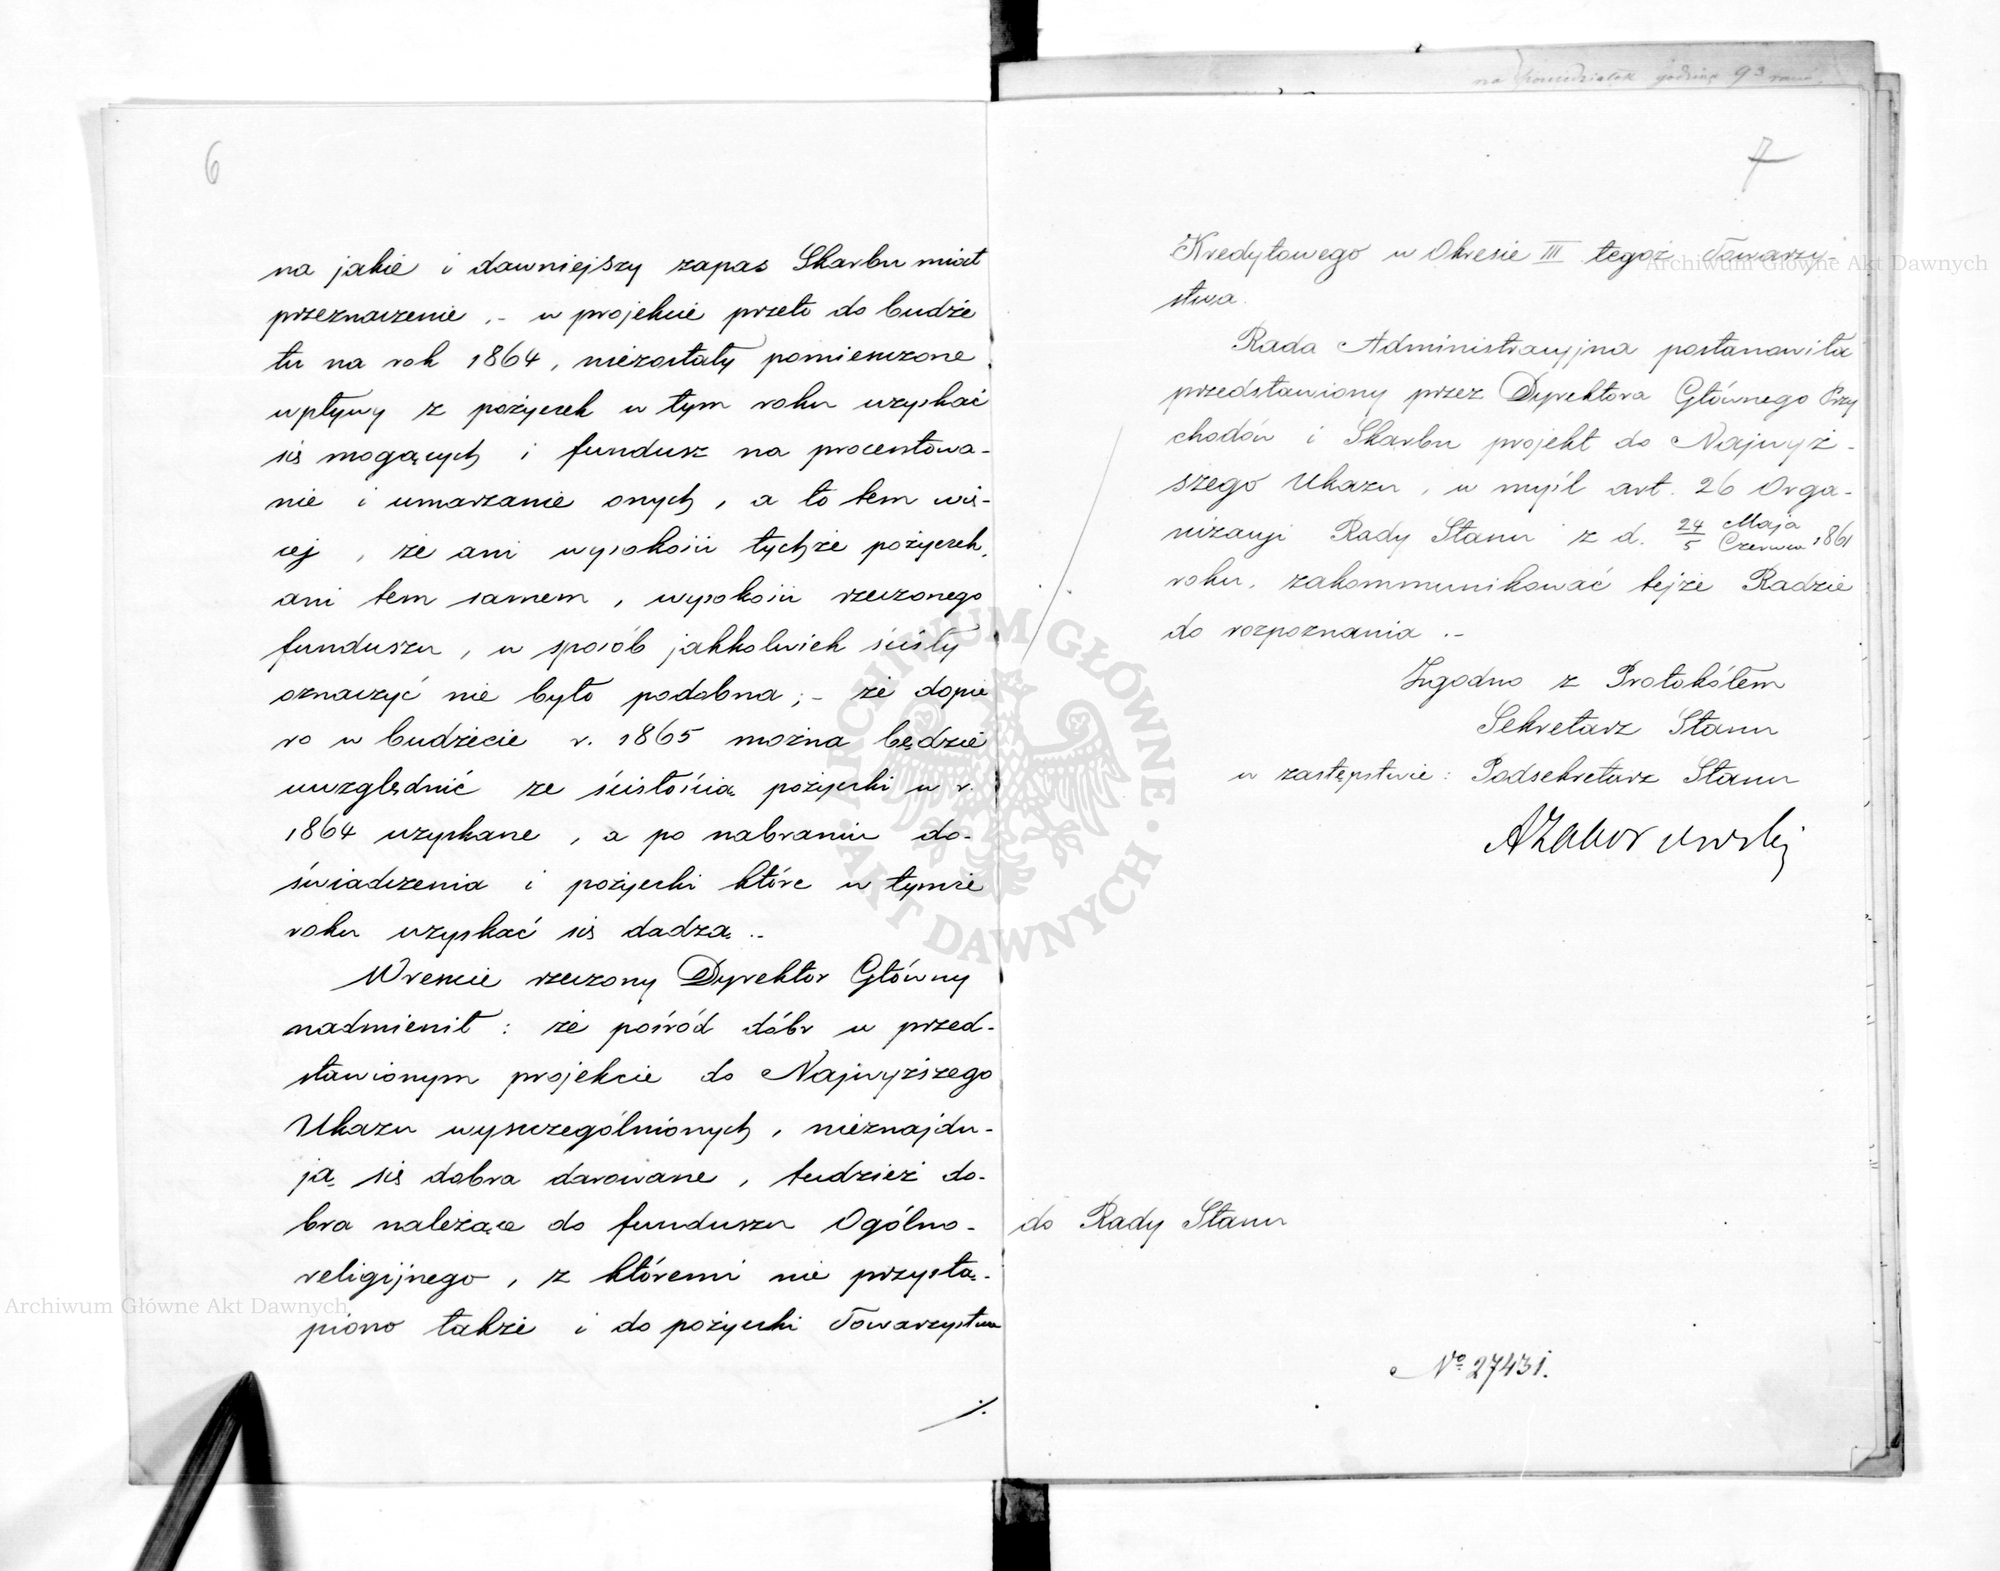 6
na jakie i dawniejszy zapas Skarbu miał
przeznaczenie .- w projekcie przeto do budże
tu na rok 1864, niezostały pomieszczone
wpływy z pożyczek w tym roku uzyskać
się mogących i fundusz na procentowa-
nie i umarzanie onych, a to tem wię-
cej, że ani wysokości tychże pożyczek,
ani tem samem, wysokości rzeczonego
funduszu, w sposób jakkolwiek ścisły
oznaczyć nie było podobna; - że dopie
ro w budżecie r. 1865 można będzie
uwzględnić ze ścisłością pożyczki w r.
1864 uzyskane, a po nabraniu do-
świadczenia i pożyczki które w tymże
roku uzyskać się dadzą .-
Wreszcie rzeczony Dyrektor Główny
nadmienił: że pośród dóbr w przed-
stawionym projekcie do Najwyższego
Ukazu wyszczególnionych, nieznajdu-
ją się dobra darowane, tudzież do-
bra należące do funduszu Ogólno-
religijnego, z któremi nie przystą-
piono także i do pożyczki Towarzystwa
./.
na poniedziałek godzinę 9 3 rano.
7
Kredytowego w Okresie III tegoż Towarzy-
stwa.
Rada Administracyjna postanowiła
przedstawiony przez Dyrektora Głównego Przy
chodów i Skarbu projekt do Najwyż-
szego Ukazu, w myśl art. 26 Orga-
nizacji Rady Stanu z d. 24/5 Maja/Czerwca 1861
roku, zakommunikować tejże Radzie
do rozpoznania .-
Zgodno z Protokółem
Sekretarz Stanu
w zastępstwie: Podsekretarz Stanu
AZaborowski
do Rady Stanu
No 27431.
Archiwum Główne Akt Dawnych
Archiwum Główne Akt Dawnych
ARCHIWUM GŁÓWNE · AKT DAWNYCH ·